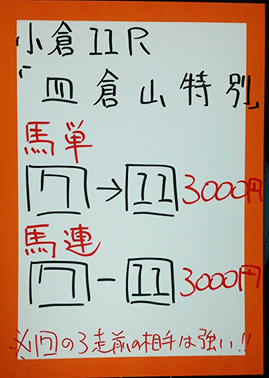 小倉11R
「皿倉山特別」
馬単
7→11 3000円
馬連
7-11 3000円
※の3走前の相手は強い!!